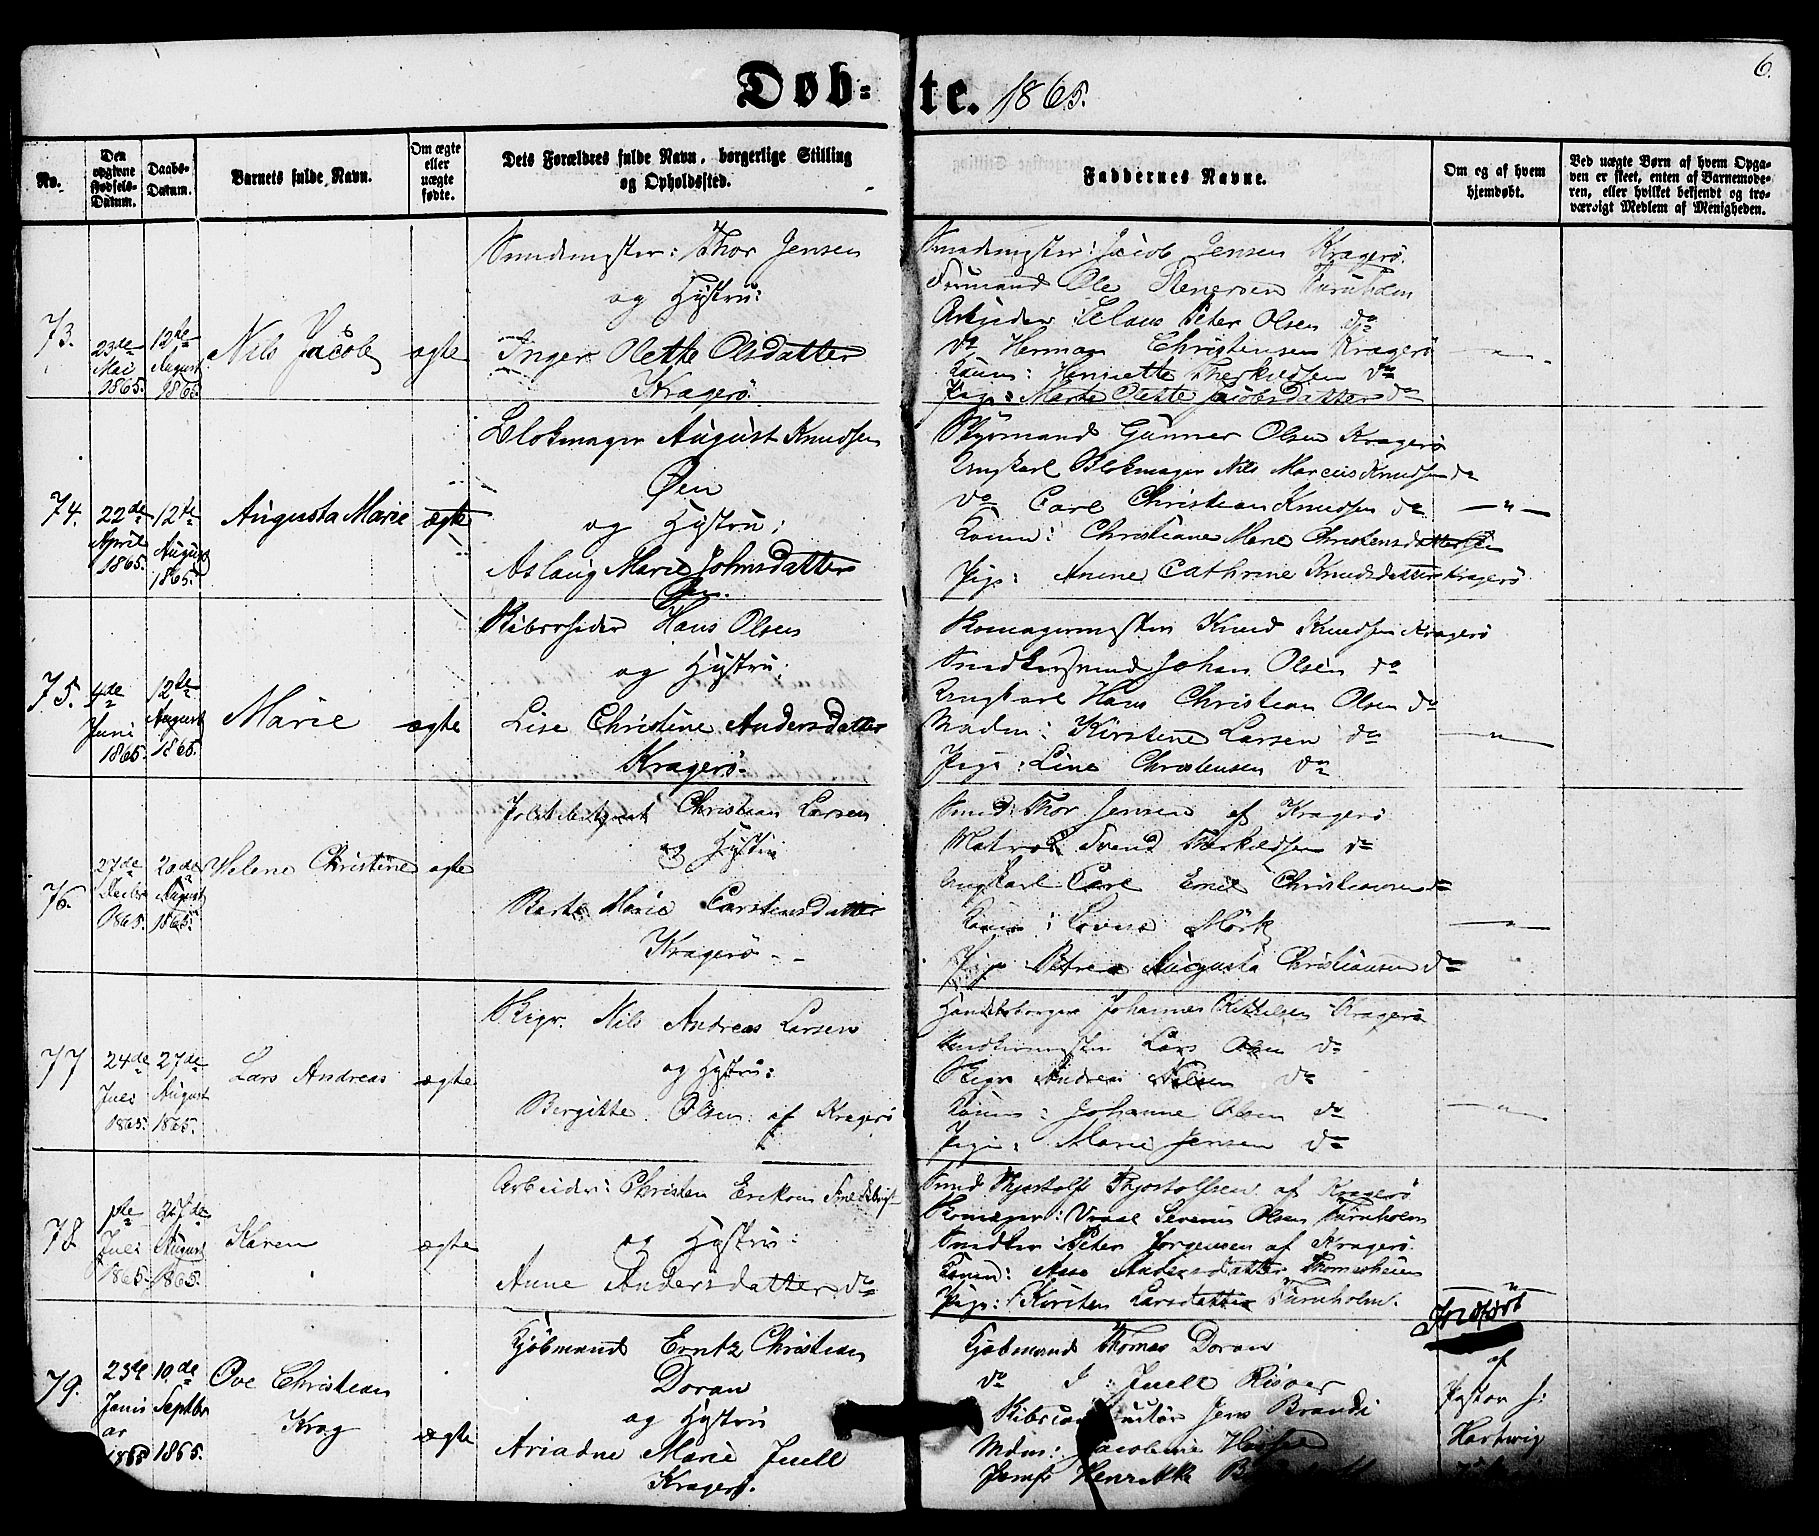 6.
Døb-te. 1865.
No.
Den opgivne Fødsels-Datum.
Daabs-Datum.
Barnets fulde Navn.
Om ægte eller uægte fødte.
Dets Forældres fulde Navn, borgerlige Stilling og Opholdssted.
Faddernes Navne.
Om og af hvem hjemdøbt.
Ved uægte Børn af hvem Opgaven er skeet, enten af Barnemoderen, eller hvilket bekjendt og troværdigt Medlem af Menigheden.
73.
23de Mai 1865.
12te August 1865.
Nils Jacob
ægte
Smedmester: Thor Jensen
og Hustru:
Inger Olette Olsdatter
Kragerø
Smedmester: Jacob Jensen Kragerø.
Formand Ole Stenersen
Arbeider Claus Peter Olsen do
do Herman Christensen Kragerø
Konen: Henriette Therkildsen do
Pige: Marte Olette Jacobsdatter do
74.
22de April 1865.
12te August 1865.
Augusta Marie
ægte
Blokmager August Knudsen
Øen
og Hustru:
Aslaug Marie Johnsdatter
Øen.
Styrmand Gunner Olsen Kragerø
Ungkarl Blokmager Nils Marcus Knudsen do
do Carl Christian Knudsen do
Konen: Christiane Marie Christensdatter Øen
Pige: Anine Cathrine Knudsdatter Kragerø
75.
4de Juni 1865.
12te August 1865.
Marie
ægte
Hans Olsen
og Hustru:
Lise Christine Andersdatter
Kragerø.
Knud Knudsen Kragerø
Johan Olsen do
Ungkarl Hans Christian Olsen do
Madm: Kirstene Larsen do
Pige: Line Christensen do
76.
27de 1865.
20de August 1865.
Helene Christine
ægte
Politibetjent Christian Larsen
og Hustru
Berte Marie Carstensdatter
Kragerø
Smed: Thor Jensen af Kragerø
Matros Svend Therkildsen do
Ungkarl Carl Emil Christiansen do
Konen: Lovise Mörk
Pige Petrea Augusta Christiansen do
77
24de Juli 1865.
27de August 1865.
Lars Andreas
ægte
Nils Andreas Larsen
og Hustru:
Bergitte Olsen af Kragerø
Handelsborger Johannes Kittelsen Kragerø
Lars Olsen do
Andreas Nilsen do
Konen: Johanne Olsen do
Pige: Marie Jensen do
78
1ste Juli 1865.
27de August 1865.
Karen
ægte
Arbeider: Christen Eriksen
og Hustru:
Anne Andersdatter do
Smed Thjostolf Thjostolfsen af Kragerø
Severin Olsen Furuholm
Peter Jorgensen af Kragerø
Konen: Asse Andersdatter
Pige: Kirsten Larsdatter Furuholm.
79.
23de Januar 1865
10de Septbr 1865.
Ove Christian Krag
ægte
Kjöbmand Erntz Christian
Doran
og Hustru
Ariadne Marie Juell
Kragerø.
Kjøbmand Thomas Doran
do J. Juell Risøer
Jens Brandi
Mdm: Jacobine
Jomfr Henrikke
Indført
af
Pastor J:
Hartwig